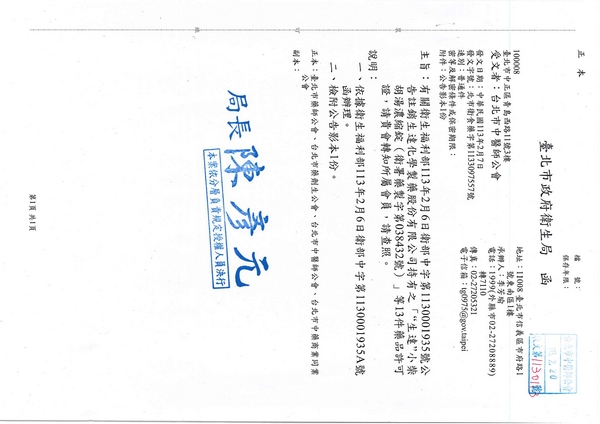 正本
檔　號：
保存年限：
臺北市政府衛生局　函
地址：11008臺北市信義區市府路1
號東南區1樓
承辦人：李芳瑜
電話：1999(外縣市02-27208889)
轉7110
傳真：02-27205321
電子信箱：tgl0975@gov.taipei
100008
臺北市中正區青島西路11號3樓
受文者：台北市中醫師公會
發文日期：中華民國113年2月7日
發文字號：北市衛食藥字第1133097557號
速別：普通件
密等及解密條件或保密期限：
附件：公告影本1份
主旨：有關衛生福利部113年2月6日衛部中字第1130001935號公
告註銷生達化學製藥股份有限公司持有之「"生達"小柴
胡湯濃縮錠（衛署藥製字第038432號）」等13件藥品許可
證，請貴會轉知所屬會員，請查照。
說明：
一、依據衛生福利部113年2月6日衛部中字第1130001935A號
函辦理。
二、檢附公告影本1份。
正本：臺北市藥師公會、台北市藥劑生公會、台北市中醫師公會、台北市中藥商業同業
公會
副本：
局長 陳彥元
本案依分層負責規定授權人員決行
第1頁 共1頁